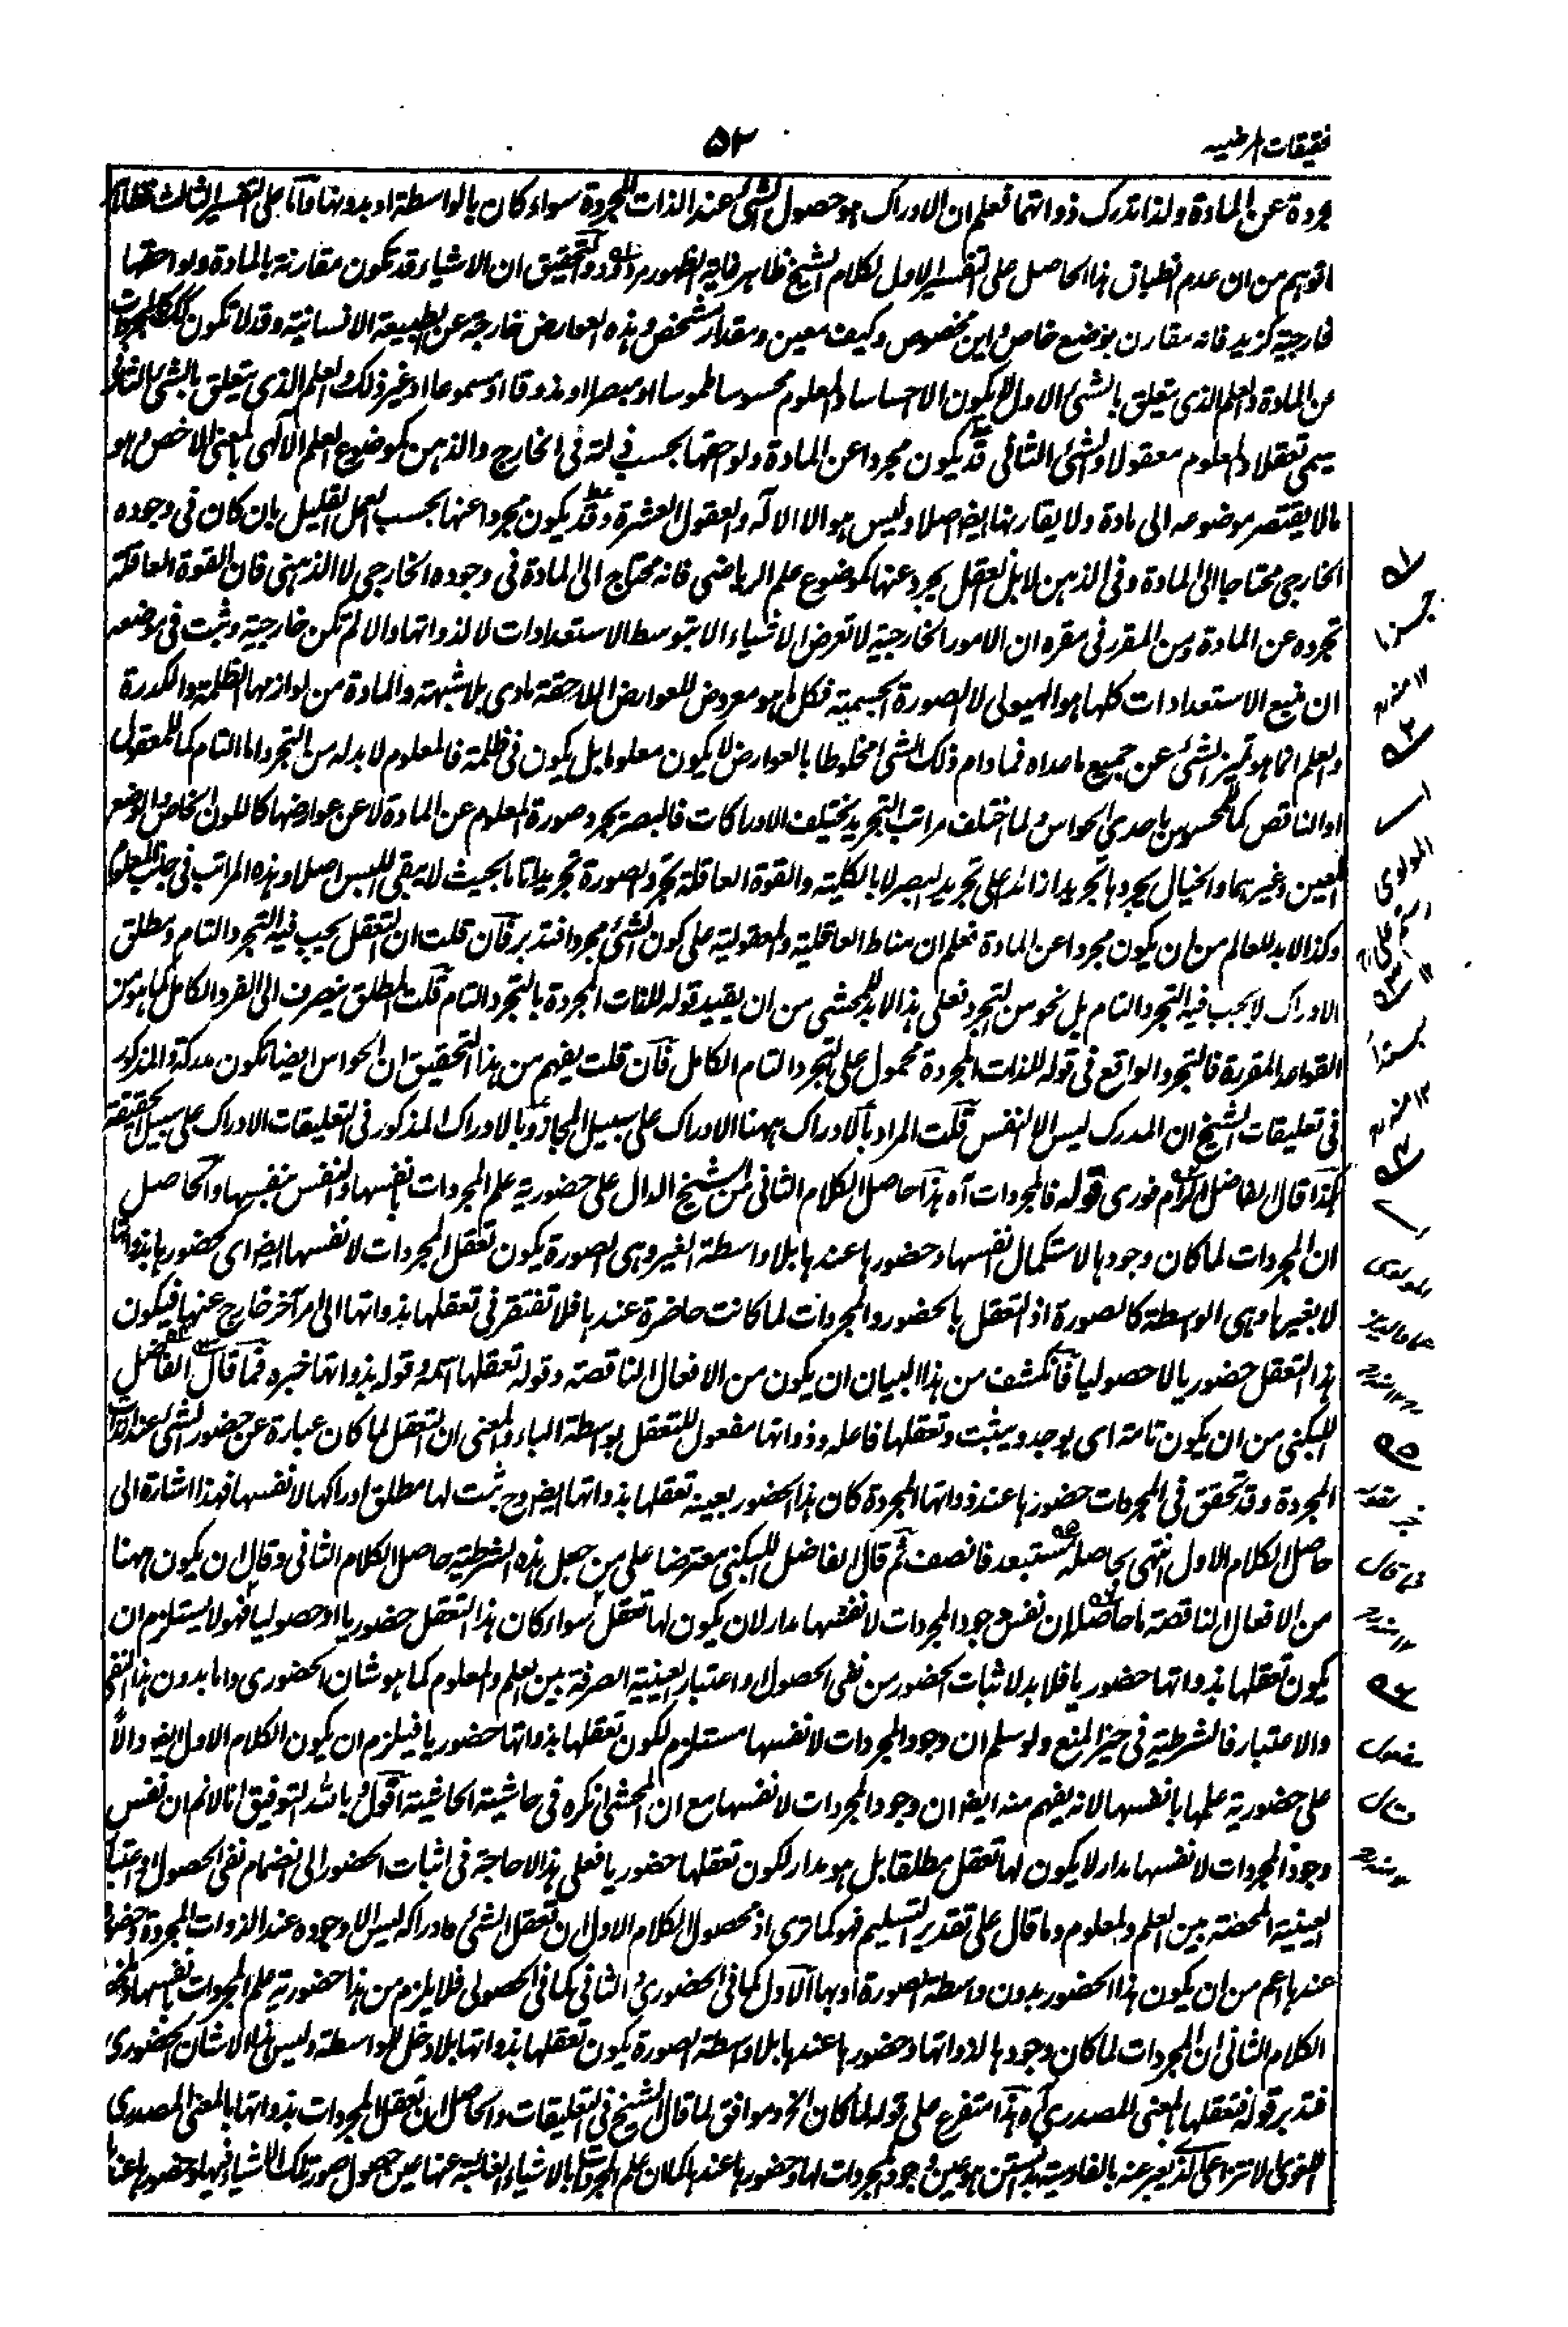 تحقیقات مرضیه
۵۲
مجردة عن المادة ولذا تدرک ذواتها فعلم ان الادراک هو حصول الشئ عند الذات المجردة سواء کان بالواسطة او بدونها فاما علی التفسیر الثالث
من ان عدم انطباق هذا الحاصل علی التفسیر الاول لکلام الشیخ ظاهر غایة الظهور مردود والتحقیق ان الاشیاء قد تکون مقارنة بالمادة ولواحقها
خارجیة کزید فانه مقارن بوضع خاص واین مخصوص وکیف معین ومقدار مشخص وهذه العوارض خارجة عن الطبیعة الانسانیة وقد لا تکون کذلک کالمجردات
عن المادة والعلم الذی یتعلق بالشئ الاول لا یکون الا احساسا والمعلوم محسوسا ملموسا او مبصرا او مذوقا او مسموعا او غیر ذلک والعلم الذی یتعلق بالشئ الثانی
یسمی تعقلا والمعلوم معقولا والشئ الثانی قد یکون مجردا عن المادة ولواحقها بحسب ذاته فی الخارج والذهن کموضوع العلم الآلهی بالمعنی الاخص وهو
ما لا یفتقر موضوعه الی مادة ولا یقارنها ایضا اصلا ولیس هو الا الاله والعقول العشرة وقد یکون مجردا عنها بحسب العمل القلیل بان کان فی وجوده
الخارجی محتاجا الی المادة وفی الذهن لا بل العقل یجرده عنها کموضوع علم الریاضی فانه محتاج الی المادة فی وجوده الخارجی لا الذهنی فان القوة العاقلة
تجرده عن المادة ومن المقرر فی مقره ان الامور الخارجیة لا تعرض الاشیاء الا بتوسط الاستعدادات لا لذواتها والا لم تکن خارجیة وثبت فی موضعه
ان منبع الاستعدادات کلها هو الهیولی لا الصورة الجسمیة فکل ما هو معروض للعوارض اللاحقة مادی بلا شبهة والمادة من لوازمها الظلمة والکدرة
والعلم انما هو تمیز الشئ عن جمیع ما عداه فما دام ذلک الشئ مخلوطا بالعوارض لا یکون معلوما بل یکون فی ظلمة فالمعلوم لا بد له من التجرد اما التام کما للمعقول
او الناقص کما للمحسوس باحدی الحواس ولما اختلف مراتب التجرید یختلف الادراکات فالبصر یجرد صورة المعلوم عن المادة لا عن عوارضها کاللون الخاص والوضع
المعین وغیرهما والخیال یجردها تجریدا زائدا علی تجرید البصر لا بالکلیة والقوة العاقلة تجرد الصورة تجریدا تاما بحیث لا یبقی اللبس اصلا وهذه المراتب فی جانب المعلوم
وکذا لا بد للعالم من ان یکون مجردا عن المادة فعلم ان مناط العاقلیة والمعقولیة علی کون الشئ مجردا فتدبر فان قلت ان التعقل یجب فیه التجرد التام ومطلق
الادراک لا یجب فیه التجرد التام بل نحو من التجرد فعلی هذا لا بد للمحشی من ان یقید قوله للذات المجردة بالتجرد التام قلت المطلق ینصرف الی الفرد الکامل کما هو من
القواعد المقررة فالتجرد الواقع فی قوله للذات المجردة محمول علی التجرد التام الکامل فان قلت یفهم من هذا التحقیق ان الحواس ایضا تکون مدرکة والمذکور
فی تعلیقات الشیخ ان المدرک لیس الا النفس قلت المراد بالادراک ههنا الادراک علی سبیل المجاز وبالادراک المذکور فی التعلیقات الادراک علی سبیل الحقیقة
کذا قال الفاضل الرام فوری قوله فالمجردات آه هذا حاصل الکلام الثانی من الشیخ الدال علی حضوریة علم المجردات بانفسها والنفس بنفسها والحاصل
ان المجردات لما کان وجودها لاستکمال انفسها وحضورها عندها بلا واسطة الغیر وهی الصورة یکون تعقل المجردات لانفسها ایضا ای کحضورها بذواتها
لا بغیرها وهی الواسطة کالصورة اذ التعقل بالحضور والمجردات لما کانت حاضرة عندها فلا تفتقر فی تعقلها بذواتها الی امر آخر خارج عنها فیکون
هذا التعقل حضوریا لا حصولیا فانکشف من هذا البیان ان یکون من الافعال الناقصة وقوله تعقلها اسمه وقوله بذواتها خبره فما قال الفاضل
اللبکنی من ان یکون تامة ای یوجد ویثبت وتعقلها فاعله وذواتها مفعول للتعقل بواسطة الباء والمعنی ان التعقل لما کان عبارة عن حضور الشئ عند الذات
المجردة وقد تحقق فی المجردات حضورها عند ذواتها المجردة کان هذا الحضور بعینه تعقلها بذواتها ایضا وح ثبت لها مطلق ادراکها لانفسها فهذا اشارة الی
حاصل الکلام الاول انتهی بحاصله مستبعد فانصف ثم قال الفاضل اللبکنی معترضا علی من جعل هذه الشرطیة حاصل الکلام الثانی وقال ان یکون ههنا
من الافعال الناقصة ما حاصله ان نفس وجود المجردات لانفسها مدار لان یکون لها تعقل سواء کان هذا التعقل حضوریا او حصولیا فهو لا یستلزم ان
یکون تعقلها بذواتها حضوریا فلا بد لاثبات الحضور من نفی الحصول واعتبار العینیة الصرفة بین العلم والمعلوم کما هو شان الحضوری واما بدون هذا النفی
والاعتبار فالشرطیة فی حیز المنع ولو سلم ان وجود المجردات لانفسها مستلزم لکون تعقلها بذواتها حضوریا فیلزم ان یکون الکلام الاول ایضا دالا
علی حضوریة علمها بانفسها لانه یفهم منه ایضا ان وجود المجردات لانفسها مع ان المحشی انکره فی حاشیة الحاشیة اقول وبالله التوفیق انا لا نم ان نفس
وجود المجردات لانفسها مدار لا یکون لها تعقل مطلقا بل هو مدار لکون تعقلها حضوریا فعلی هذا لا حاجة فی اثبات الحضور الی انضمام نفی الحصول واعتبار
العینیة المحضة بین العلم والمعلوم وما قال علی تقدیر التسلیم فهو کما تری اذ محصول الکلام الاول ان تعقل الشئ وادراکه لیس الا وجوده عند الذوات المجردة وحضوره
عندها اعم من ان یکون هذا الحضور بدون واسطة الصورة او بها الاول کما فی الحضوری والثانی کما فی الحصولی فلا یلزم من هذا حضوریة علم المجردات بانفسها
الکلام الثانی ان المجردات لما کان وجودها لذواتها وحضورها عندها بلا واسطة الصورة یکون تعقلها بذواتها بلا دخل للواسطة ولیس هذا الا شان الحضوری
فتدبر قوله فتعقلها بالمعنی المصدری آه هذا متفرع علی قوله لما کان الخ وموافق لما قال الشیخ فی التعلیقات والحاصل ان تعقل المجردات بذواتها بالمعنی المصدری
اللغوی الانتزاعی الذی یعبر عنه بالفارسیة بدانستن هو عین وجود المجردات لها وحضورها عندها کما ان علم المجردات بالاشیاء الغائبة عنها عین حصول صور تلک الاشیاء فیها وحضورها عندها
۱۲ منه
المولوی
۱۲ منه
المولوی